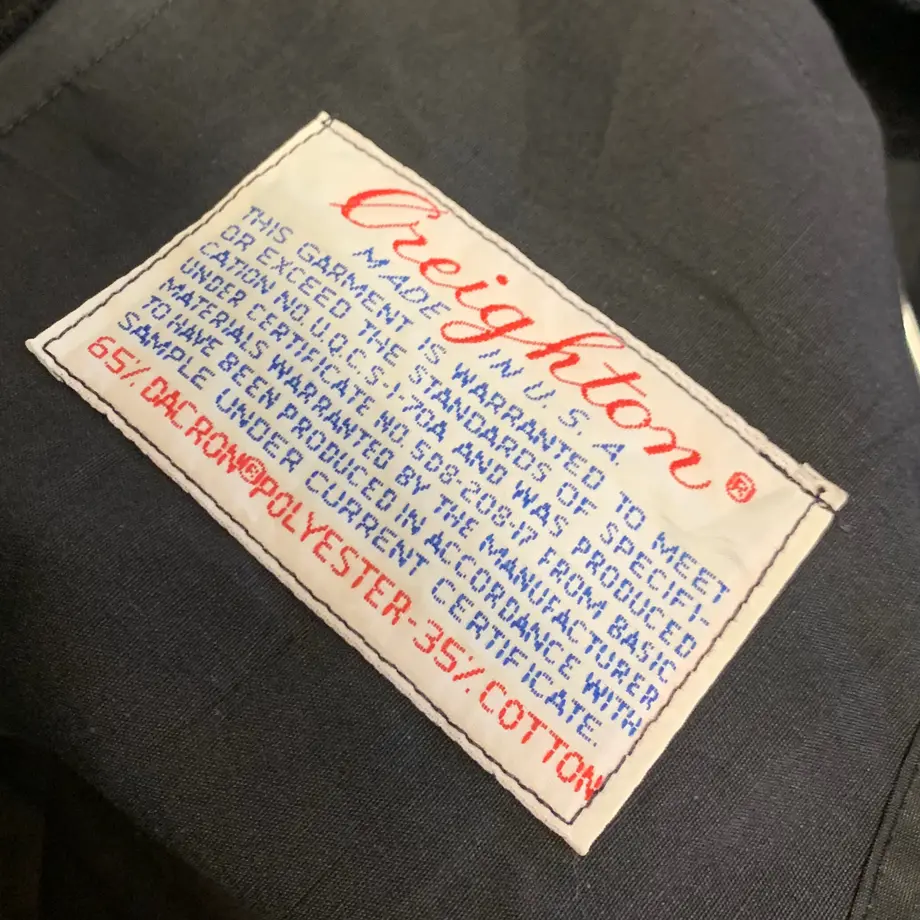 Creighton®
MADE IN U. S. A.
THIS GARMENT IS WARRANTED TO MEET
OR EXCEED THE STANDARDS OF SPECIFI-
CATION NO. U.Q.C.S-1-70A AND WAS PRODUCED
UNDER CERTIFICATE NO. 5D8-208-17 FROM BASIC
MATERIALS WARRANTED BY THE MANUFACTURER
TO HAVE BEEN PRODUCED IN ACCORDANCE WITH
SAMPLE UNDER CURRENT CERTIFICATE.
65% DACRON® POLYESTER-35% COTTON